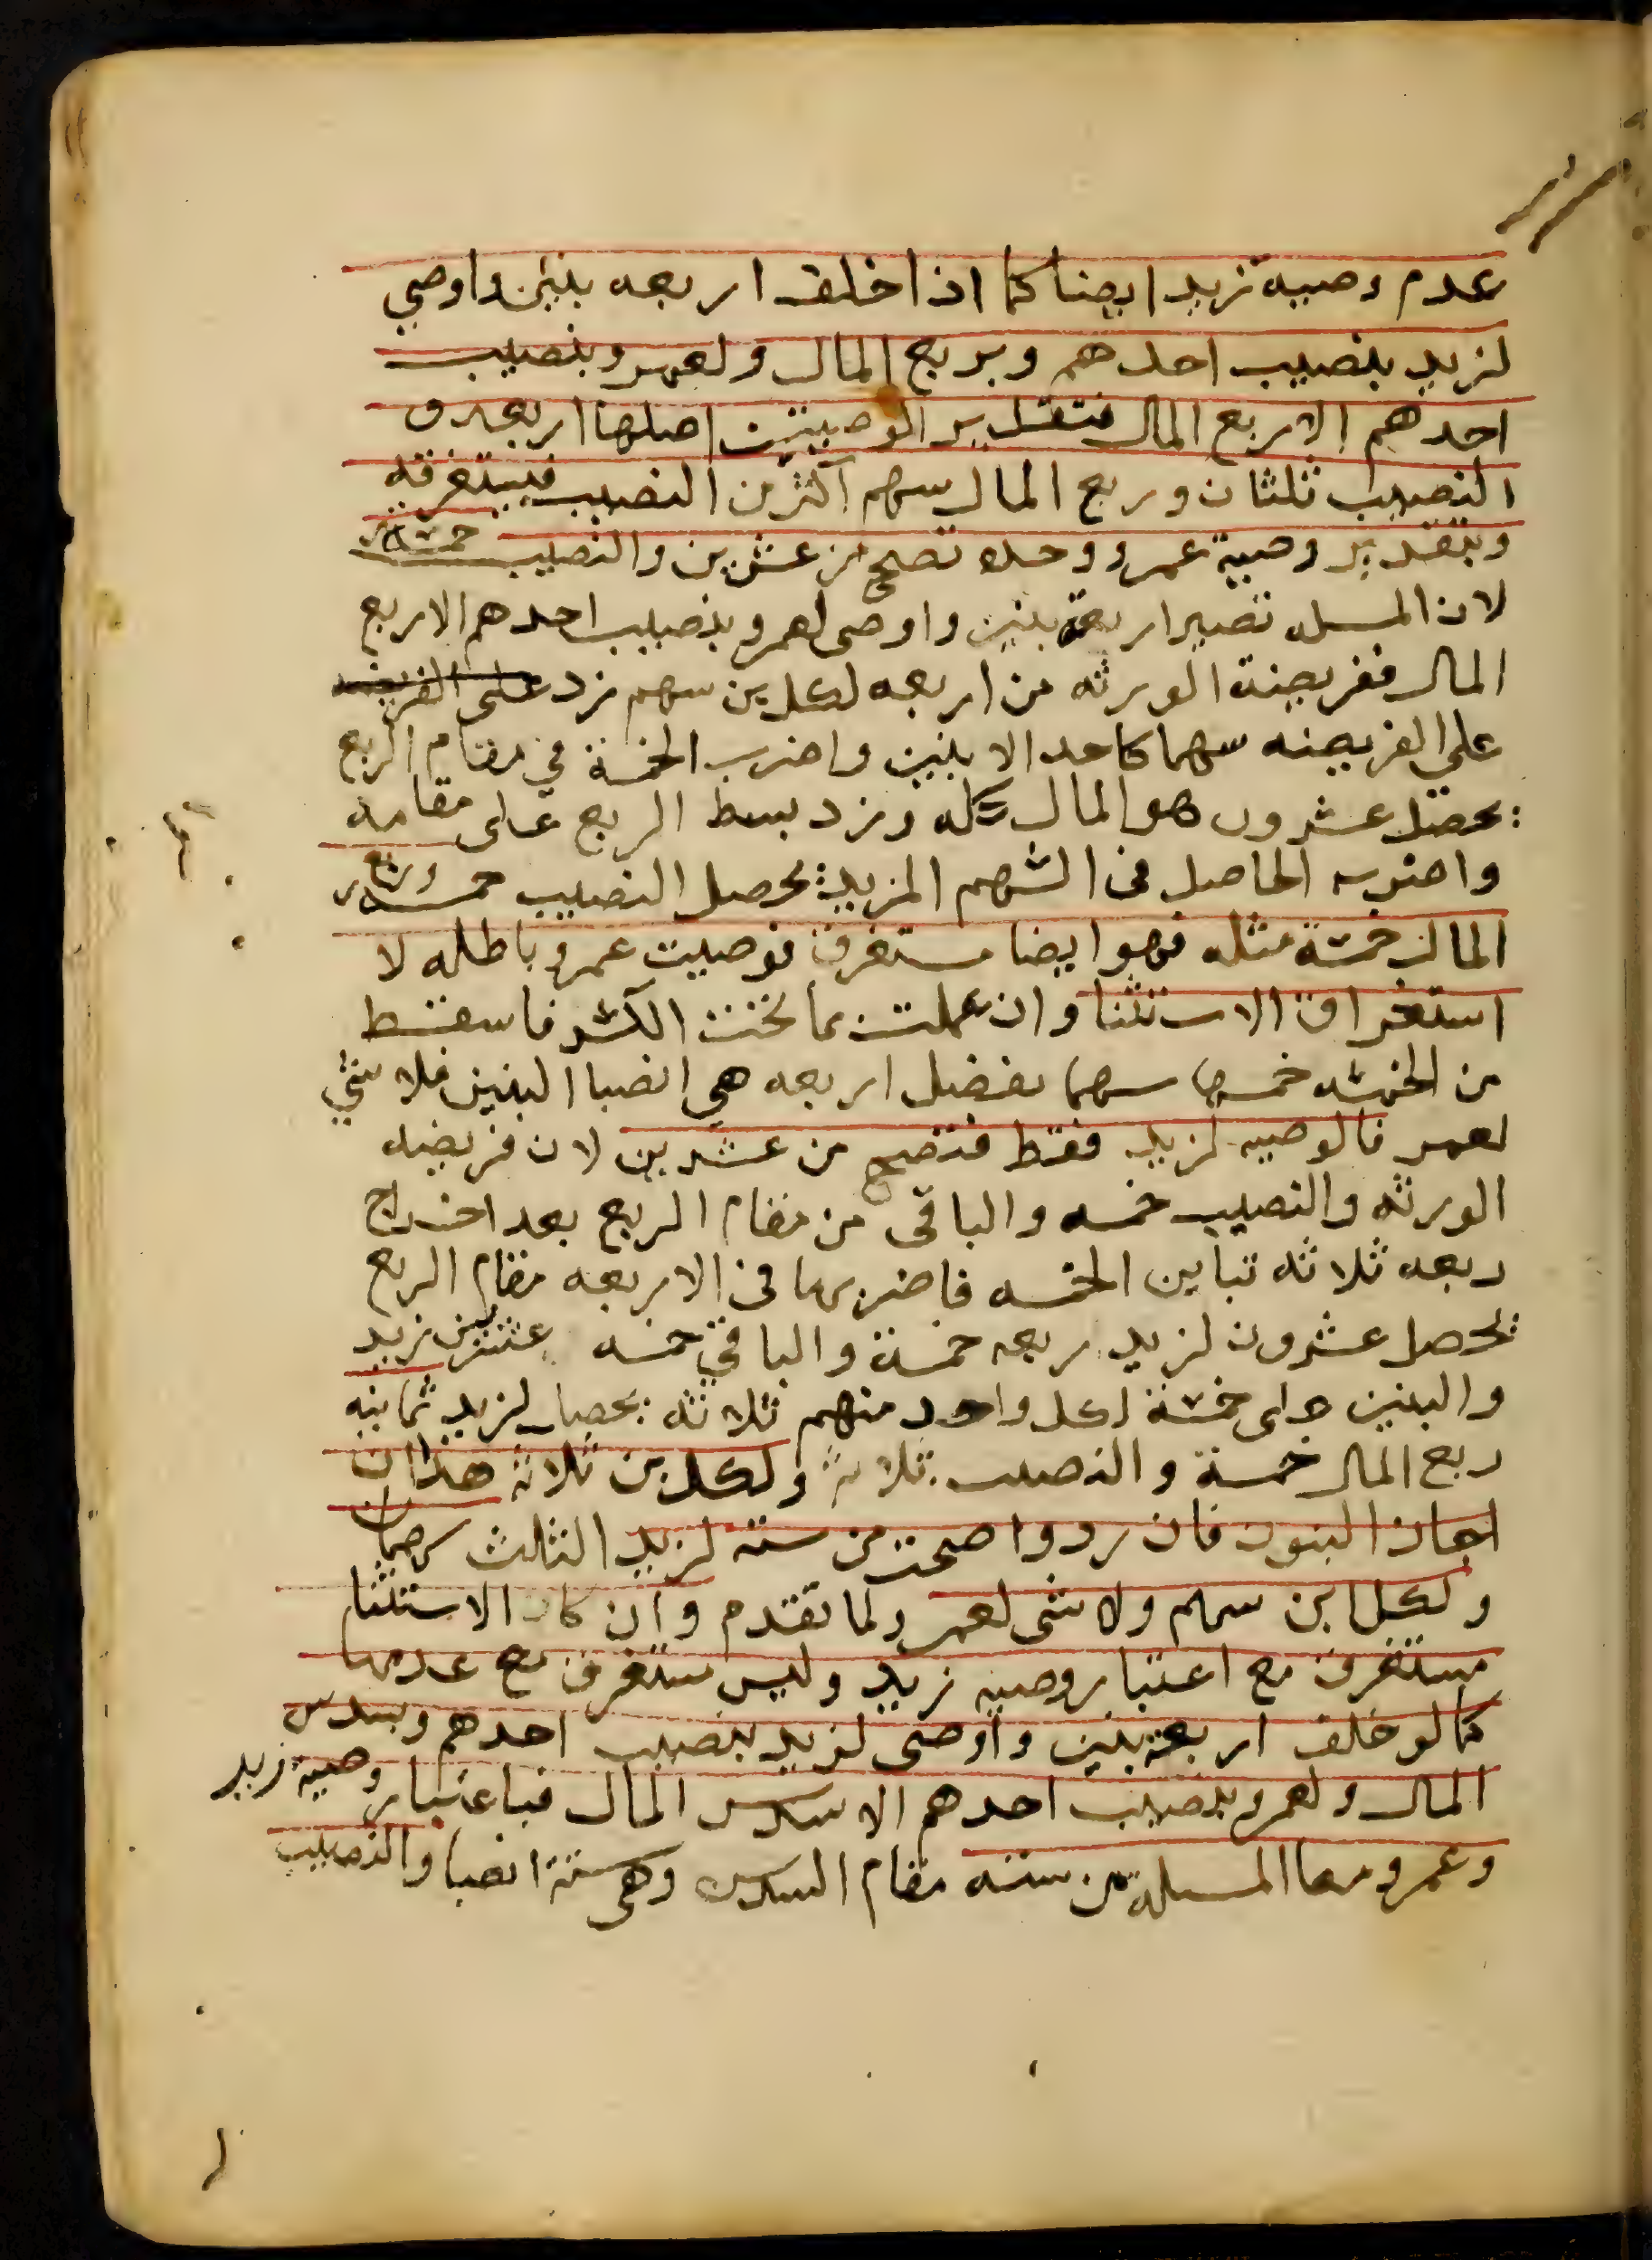 عدم وصيه زيد ايضا كما اذا خلف اربعه بنين واوصي
لزيد بنصيب احدهم وبربع المال ولعمرو بنصيب
احدهم الا ربع المال فبتقدير الوصيتين اصلها اربعه و
النصيب ثلثان وربع المال سهم اكثر من النصيب فيستغرقه
وبتقدير وصية عمرو وحده تصح من عشرين والنصيب خمسة
لان المسله تصير اربعة بنين واوصى لعمرو بنصيب احدهم الا ربع
المال ففريضة الورثه من اربعه لكل بن سهم زد على الفريضه
على الفريضه سهما كاحد الا بنين واضرب الخمسة في مقام الربع
يحصل عشرون هو المال كله وزد بسط الربع على مقامه
واضرب الحاصل فى السهم المزيد يحصل النصيب خمسه وربع
المال خمسة مثله فهو ايضا مستغرق فوصيت عمرو باطله لا
استغراق الاستثنا وان عملت بما تحت الكسر فاسقط
من الخمسه خمسها سهما يفضل اربعه هي انصبا البنين فلا شي
لعمرو فالوصيه لزيد فقط فتصح من عشرين لان فريضه
الورثه والنصيب خمسه والباقى من مقام الربع بعد اخراج
ربعه ثلاثه تباين الخمسه فاضربها فى الاربعه مقام الربع
يحصل عشرون لزيد ربعه خمسة والباقي خمسه عشر بين زيد
والبنين على خمسة لكل واحد منهم ثلاثه يحصل لزيد ثمانيه
ربع المال خمسة والنصيب ثلاثة ولكل بن ثلاثة هذا ان
اجاز البنون فان ردوا صحت من سته لزيد الثالث سهمان
ولكل ابن سهم ولا شى لعمرو لما تقدم وان كان الاستثنا
مستغرق مع اعتبار وصيه زيد وليس مستغرق مع عدمها
كما لو خلف اربعة بنين واوصى لزيد بنصيب احدهم وبسدس
المال ولعمرو بنصيب احدهم الا سدس المال فباعتبار وصية زيد
وعمرو معا المسله من سته مقام السدس وهى ستة انصبا والنصيب